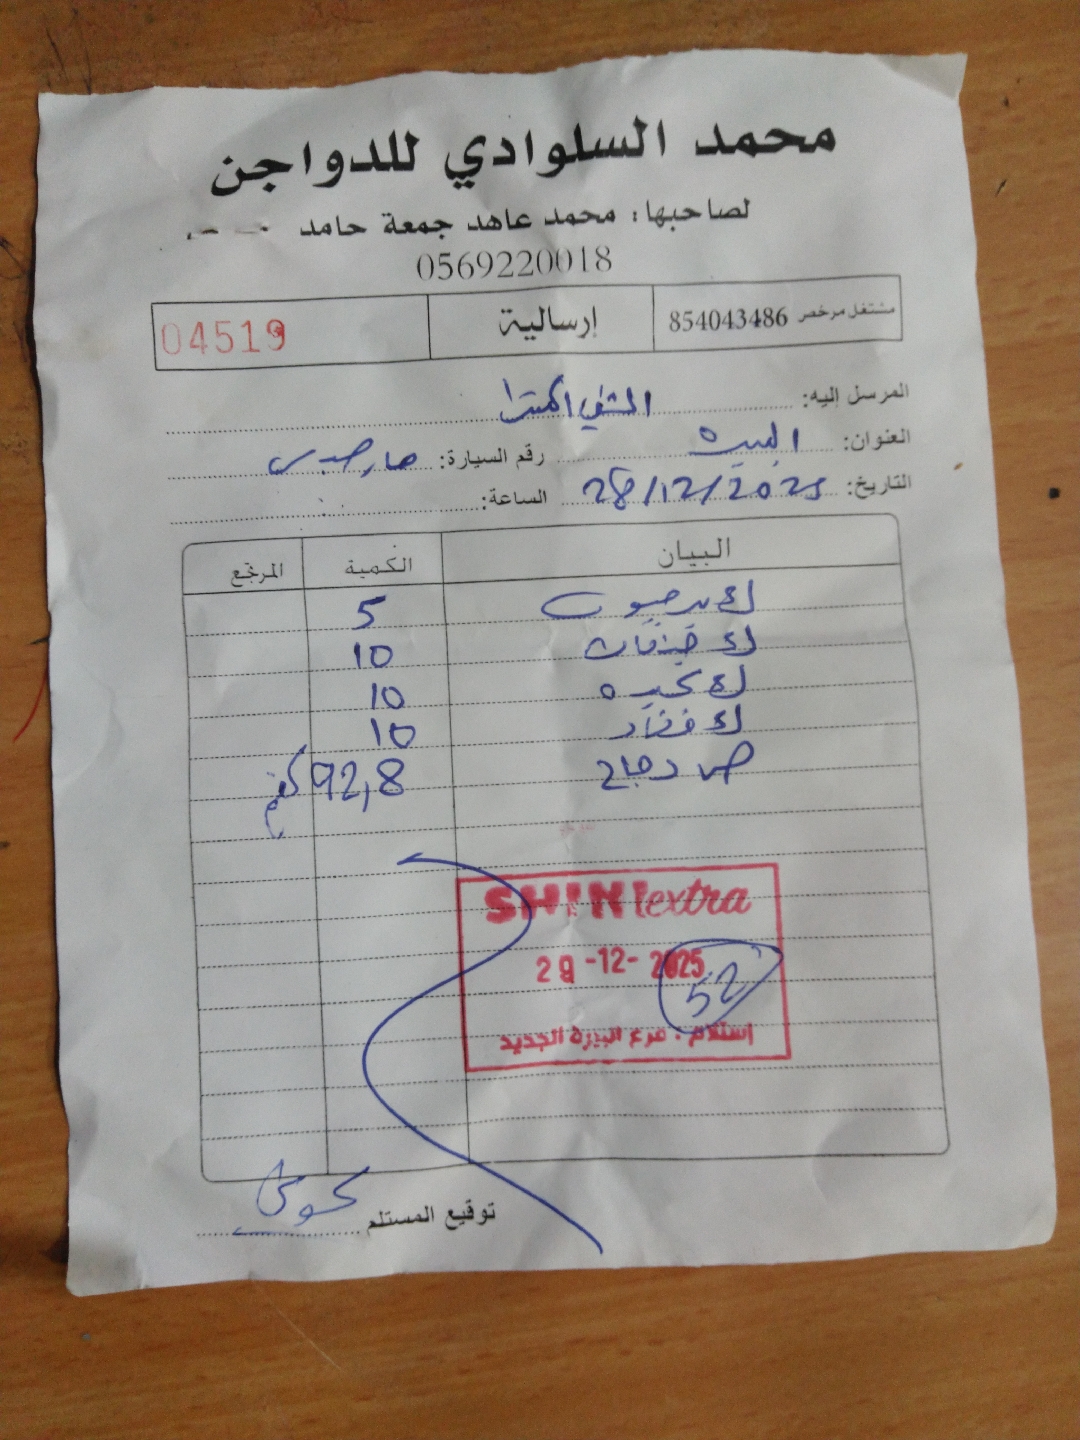 محمد السلوادي للدواجن
لصاحبها: محمد عاهد جمعة حامد
0569220018
مشتغل مرخص 854043486
إرسالية
04519
المرسل إليه: الشني اكسترا
العنوان: البيره رقم السيارة:
التاريخ: 28/12/2025 الساعة:
البيان الكمية المرتجع
5
10
10
10
دجاج 92,8 كغم
SHINI extra
29-12-2025
52
إستلام . فرع البيرة الجديد
توقيع المستلم